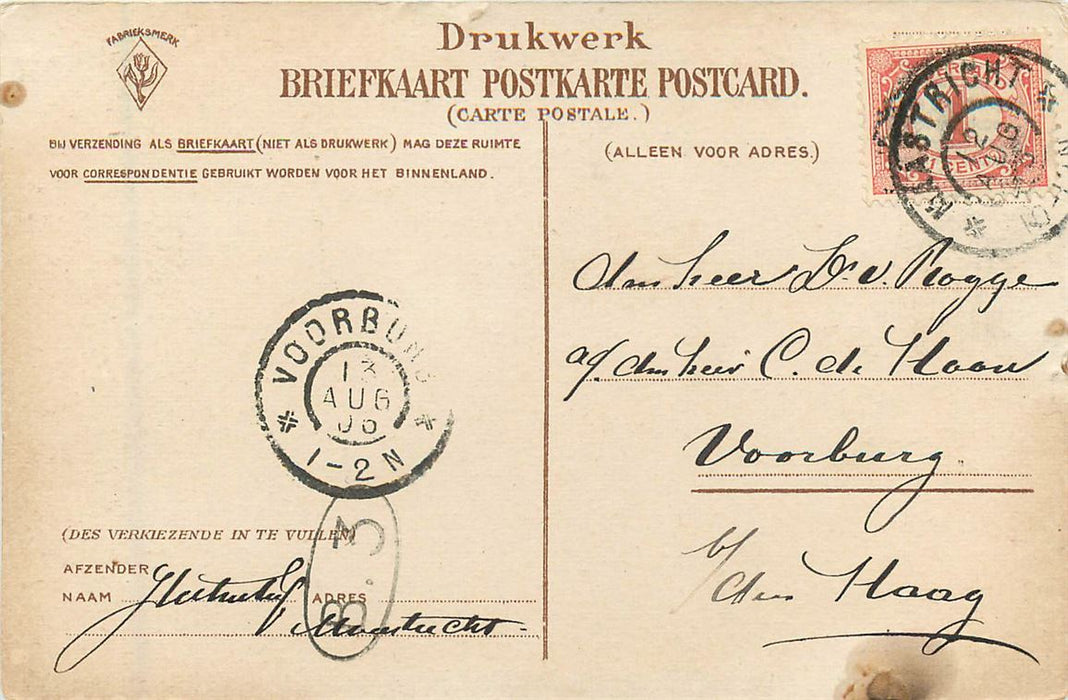 FABRIEKSMERK
Drukwerk
BRIEFKAART POSTKARTE POSTCARD.
(CARTE POSTALE.)
BIJ VERZENDING ALS BRIEFKAART (NIET ALS DRUKWERK) MAG DEZE RUIMTE
VOOR CORRESPONDENTIE GEBRUIKT WORDEN VOOR HET BINNENLAND.
(ALLEEN VOOR ADRES.)
MAASTRICHT
12
AUG
1
CENT
den heer D. v. Rogge
a/ den heer C. de Haan
Voorburg
b/
den Haag
VOORBURG
13
AUG
06
1-2 N
B. 3
(DES VERKIEZENDE IN TE VULLEN)
AFZENDER
NAAM ADRES
Maastricht